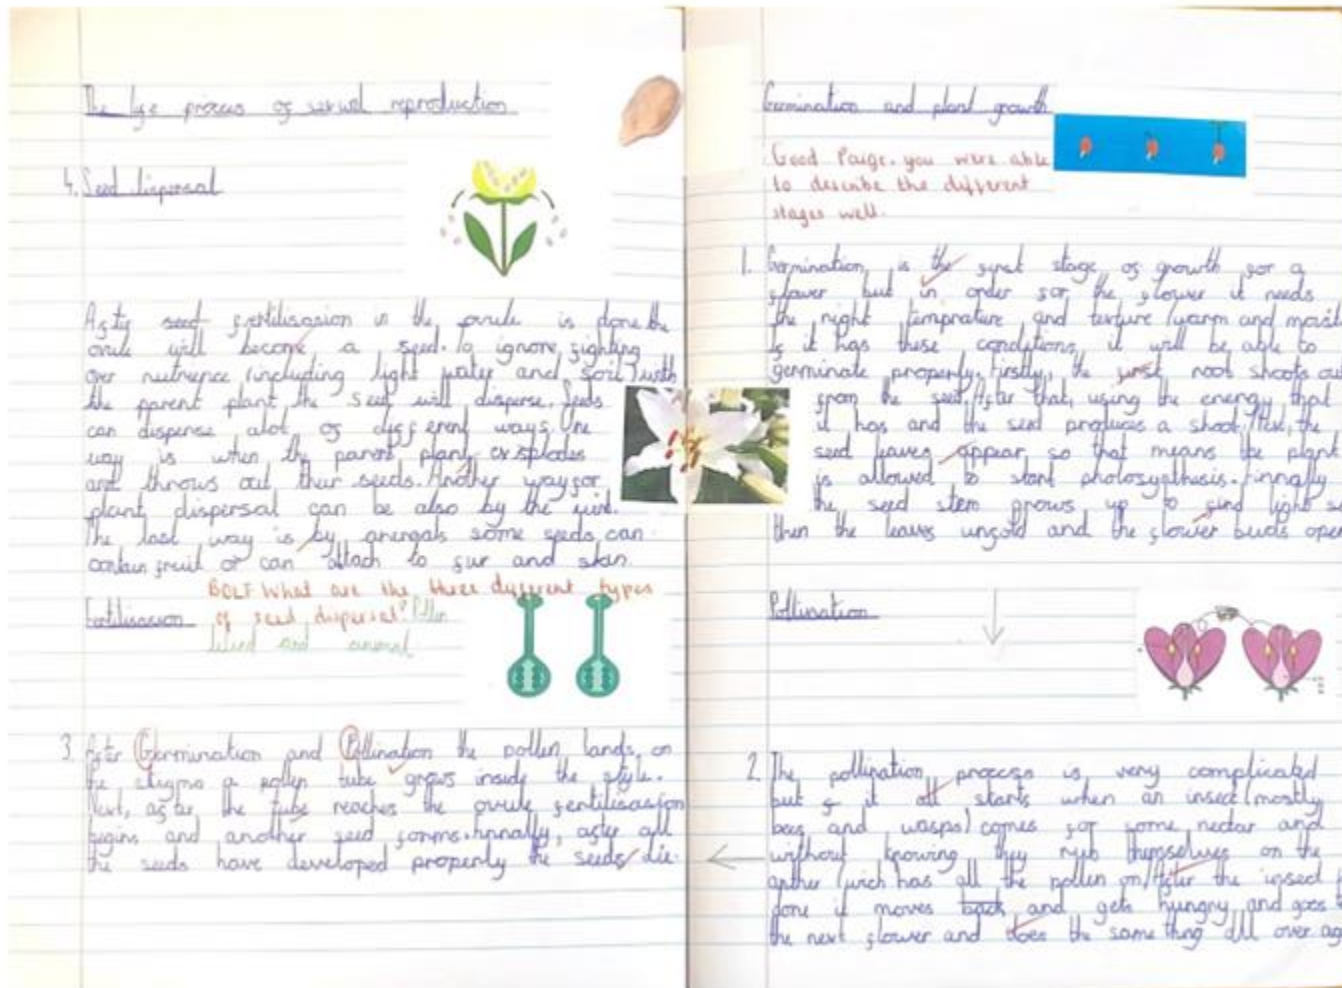 The life process of sexual reproduction
4. Seed dispersal
After seed fertilisasion in the ovule is done the
ovule will become a seed. To ignore fighting
over nutrience (including light water and soil) with
the parent plant the seed will disperse. Seeds
can dispense alot of different ways. One
way is when the parent plant explodes
and throws out their seeds. Another way for
plant dispersal can be also by the wind.
The last way is by some seeds can
contain fruit or can attach to fur and skin.
BOLT What are the three different types
of seed dispersal?
Wind and animal
Fertilisasion
3. After Germination and Pollination the pollen lands on
the stigma a pollen tube grows inside the style.
Next, after the tube reaches the ovule fertilisasion
begins and another seed forms. Finnally, after all
the seeds have developed properly the seeds die.
Germination and plant growth
Good Paige. you were able
to describe the different
stages well.
1. Germination is the first stage of growth for a
flower but in order for the flower it needs
the right temprature and texture (warm and moist
If it has these conditions, it will be able to
germinate properly. Firstly, the first root shoots out
from the seed. After that, using the energy that
it has and the seed produces a shoot. Next, the
seed leaves appear so that means the plant
is allowed to start photosypthisis. Finnally
the seed stem grows up to find light
then the leaves unfold and the flower buds open
Pollination
2. The pollination process is very complicated
but it all starts when an insect (mostly
bees and wasps) comes for some nectar and
without knowing they rub themselves on the
anther (wich has all the pollen on) After the insect
done it moves back and gets hungry and goes
the next flower and does the same thing all over